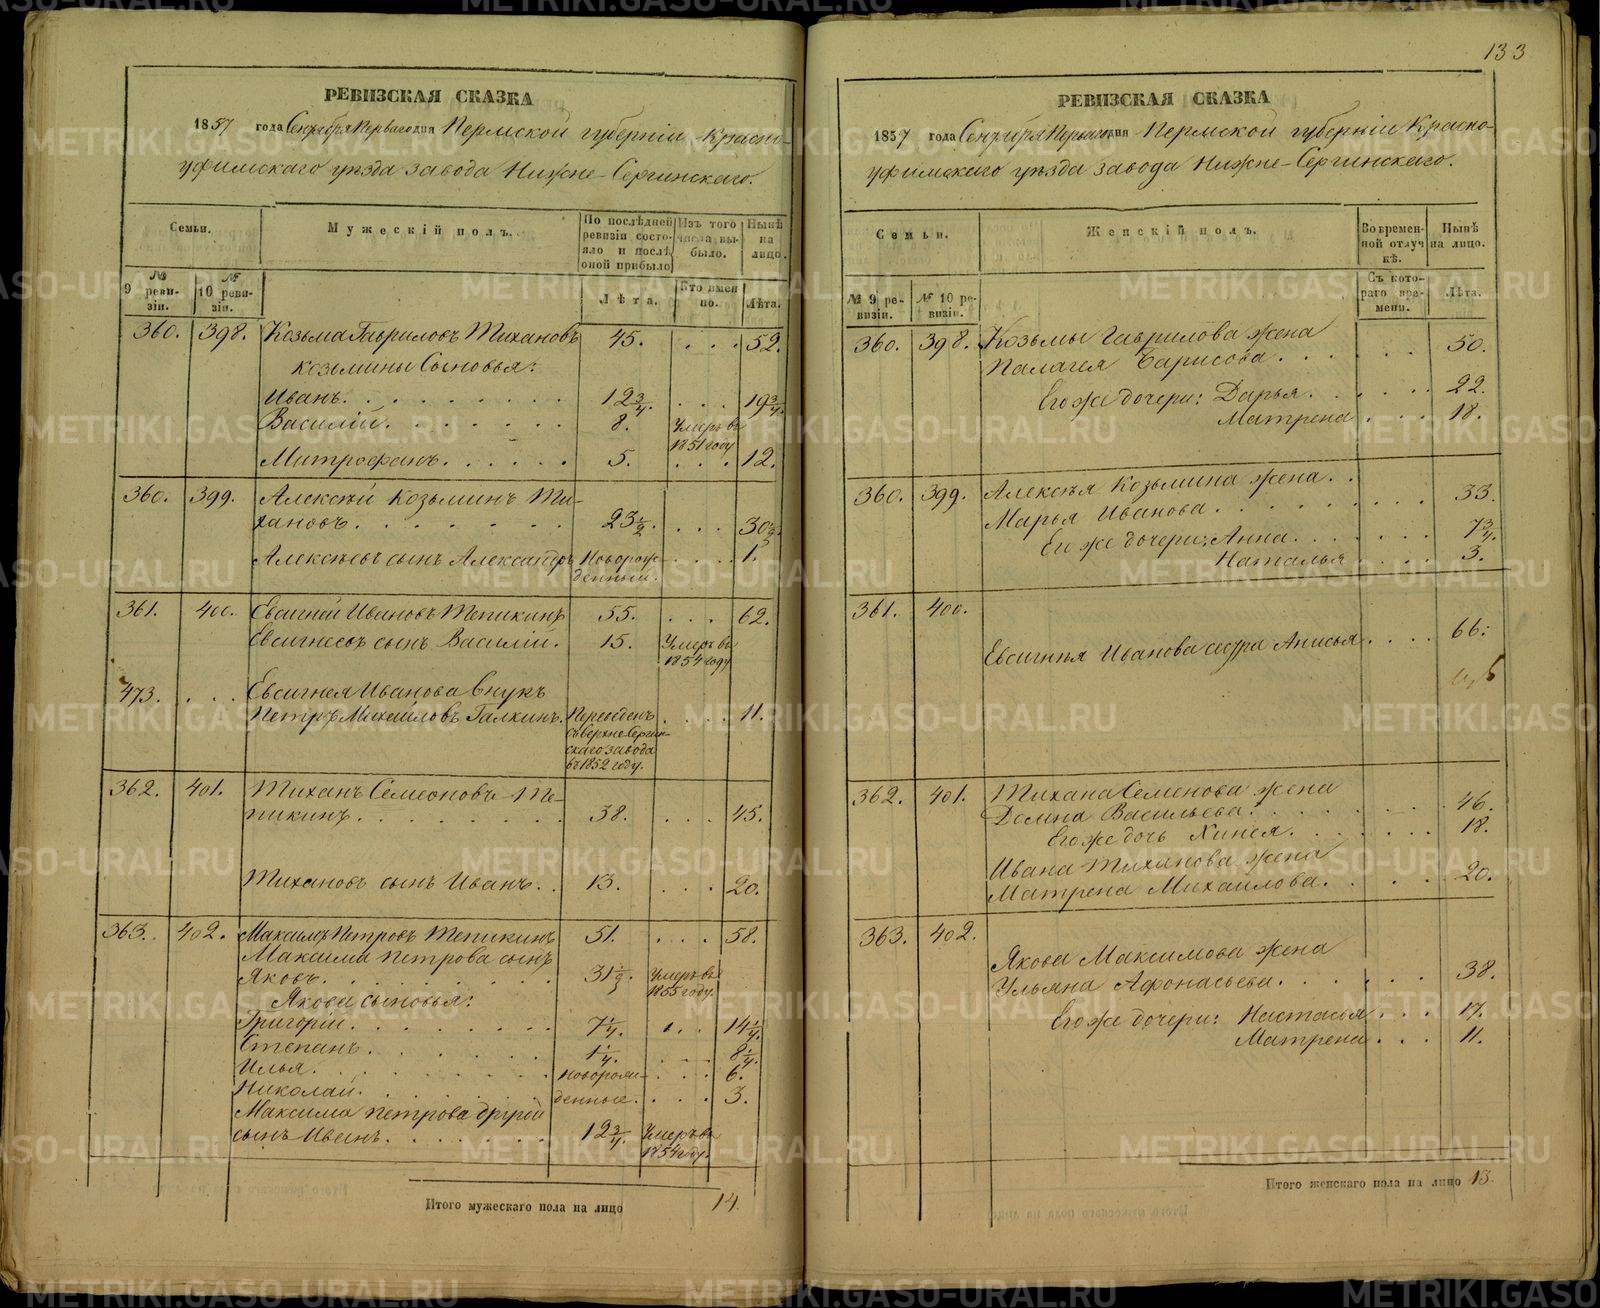 РЕВИЗСКАЯ СКАЗКА
1857 года Сентября Перваго дня Пермской губерніи Красно-
уфимскаго уѣзда завода Нижне-Сергинскаго.
Семьи.
Мужескій полъ.
По послѣдней ревизіи состояло и послѣ оной прибыло
Изъ того числа выбыло.
Нынѣ на лицо.
№ 9 ревизіи.
№ 10 ревизіи.
Лѣта.
Кто именно.
Лѣта.
360. 398. Козьма Гавриловъ Тихановъ 45. . . . 52.
Козьмины Сыновья:
Иванъ. 12 3/4. . . . 19 3/4.
Василій. 8. Умеръ въ 1851 году
Митрофанъ. 5. . . . 12.
360. 399. Алексѣй Козьминъ Ти-
хановъ. 23 1/2. . . . 30 1/2.
Алексѣевъ сынъ Александръ Новорож-денный. . . . 1.
361. 400. Евсигней Ивановъ Тепикинъ 55. . . . 62.
Евсигнеевъ сынъ Василій. 15. Умеръ въ 1854 году
473. . . Евсигнея Иванова внукъ
Петръ Михайловъ Галкинъ. Переведенъ съ Верхне-Сергинскаго завода въ 1852 году. . . . 11.
362. 401. Тиханъ Семеоновъ Те-
пикинъ. 38. . . . 45.
Тихановъ сынъ Иванъ. 13. . . . 20.
363. 402. Максимъ Петровъ Тепикинъ 51. . . . 58.
Максима Петрова сынъ
Яковъ. 31 1/2. Умеръ въ 1855 году.
Якова сыновья:
Григорій. 7 1/4. . . . 14 1/4.
Степанъ. 1 1/4. . . . 8 1/4.
Илья. Новорож- . . . 6.
Николай. денные. . . . 3.
Максима Петрова другой
сынъ Иванъ. 12 3/4. Умеръ въ 1854 году.
Итого мужескаго пола на лицо 14.
133
РЕВИЗСКАЯ СКАЗКА
1857 года Сентября Перваго дня Пермской губерніи Красно-
уфимскаго уѣзда завода Нижне-Сергинскаго.
Семьи.
Женскій полъ.
Во временной отлучкѣ.
Нынѣ на лицо.
№ 9 ревизіи.
№ 10 ревизіи.
Съ котораго времени.
Лѣта.
360. 398. Козьмы Гаврилова жена
Палагея Барисова. 50.
Его же дочери: Дарья. 22.
Матрена 18.
360. 399. Алексѣя Козьмина жена.
Марья Иванова. 33.
Его же дочери: Анна. 7 3/4.
Наталья 3.
361. 400.
Евсигнѣя Иванова сестра Анисья 66.
362. 401. Тихана Семенова жена
Домна Васильева. 46.
Его же дочь Хинея. 18.
Ивана Тиханова жена
Матрена Михайлова. 20.
363. 402.
Якова Максимова жена
Ульяна Афонасьева. 38.
Его же дочери: Настасья 17.
Матрена 11.
Итого женскаго пола на лицо 13.
METRIKI.GASO-URAL.RU